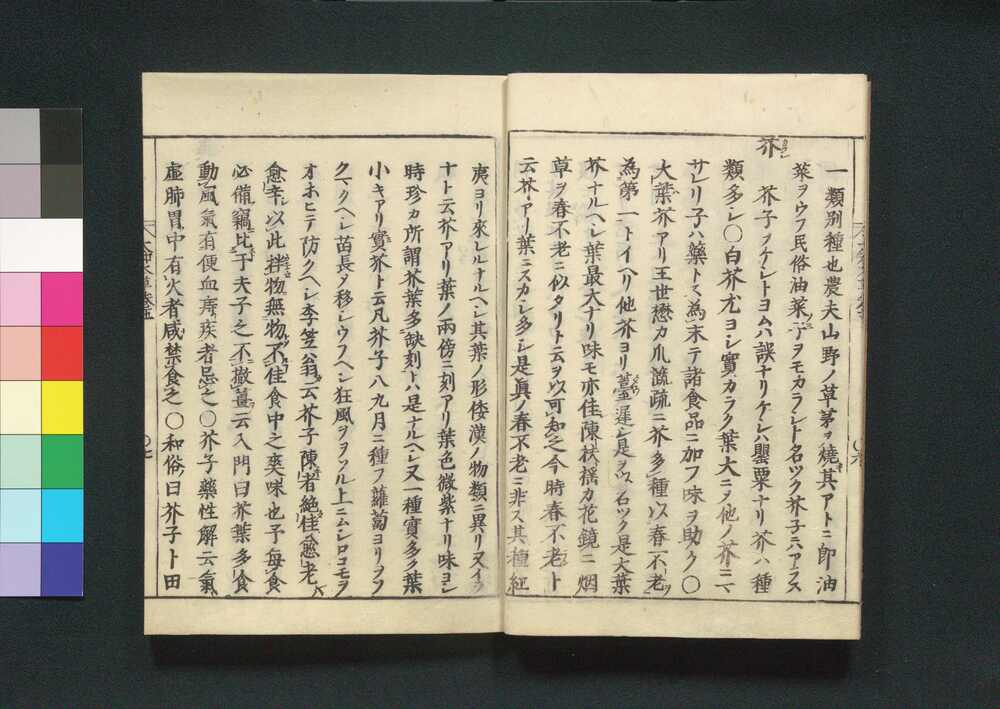 一類別種也農夫山野ノ草茅ヲ燒其アトニ卽油
菜ヲウフ民俗油菜ヲモカラシト名ツク芥子ニハアラス
芥
芥子ヲケシトヨムハ誤ナリケシハ罌粟ナリ芥ハ種
類多シ〇白芥尤ヨシ實カラク葉大ニシテ他ノ芥ニマ
サレリ子ハ藥トス為末テ諸食品ニ加フ味ヲ助ク〇
大葉芥アリ王世懋カ瓜蔬疏ニ芥多種以春不老
為第一トイヘリ他芥ヨリ薹遲シ是ヲ以名ツク是大葉
芥ナルヘシ葉最大ナリ味モ亦佳陳扶搖カ花鏡ニ烟
草ヲ春不老ニ似タリト云ヲ以可知之今時春不老ト
云芥アリ葉ニスカシ多シ是眞ノ春不老ニ非ス其種紅
夷ヨリ來レルナルヘシ其葉ノ形倭漢ノ物類ニ異リ又イラ
ナト云芥アリ葉ノ兩傍ニ刻アリ葉色微紫ナリ味ヨシ
時珍カ所謂芥葉多缺刻トハ是ナルヘシ又一種實多ク葉
小キアリ實芥ト云凡芥子八九月ニ種フ蘿蔔ヨリヲソ
クマクヘシ苗長メ移シウフヘシ狂風ヲヲソル上ニムシロコモヲ
オホヒテ防クヘシ李笠翁云芥子陳者絶佳愈老
愈辛以此拌物無物不佳食中之爽味也予毎食
必備竊比于夫子之不撤薑云入門曰芥葉多食
動風氣有便血痔疾者忌之〇芥子藥性解云氣
虛肺胃中有火者咸禁食之〇和俗曰芥子ト田